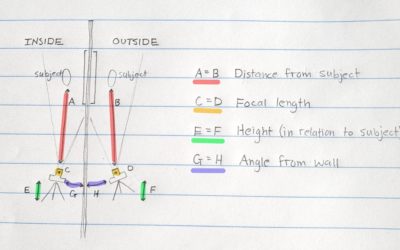 INSIDE OUTSIDE
subject subject
A B
C D
E G H F
A = B Distance from subject
C = D Focal length
E = F Height (in relation to subject)
G = H Angle from wall